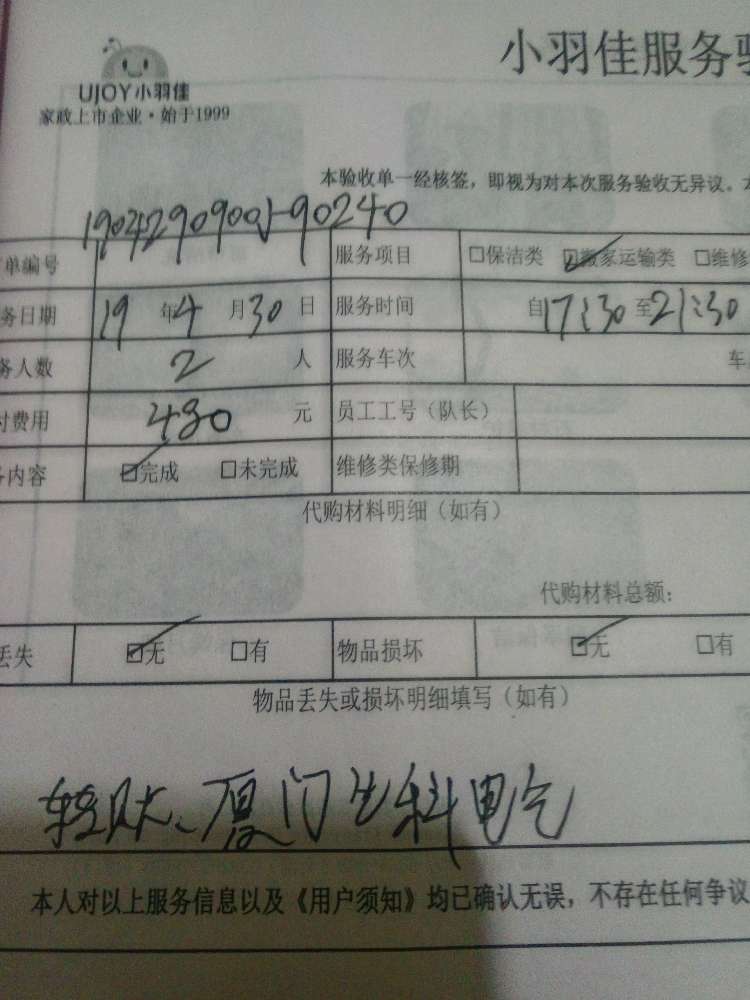 小羽佳服务
UJOY小羽佳
家政上市企业·始于1999
本验收单一经核签，即视为对本次服务验收无异议。
单编号 服务项目 □保洁类 ☑搬家运输类 □维修
务日期 19年4月30日 服务时间 自17:30至21:30
务人数 2人 服务车次 车
付费用 480元 员工工号（队长）
务内容 ☑完成 □未完成 维修类保修期
代购材料明细（如有）
代购材料总额：
丢失 ☑无 □有 物品损坏 ☑无 □有
物品丢失或损坏明细填写（如有）
厦门 科电气
本人对以上服务信息以及《用户须知》均已确认无误，不存在任何争议